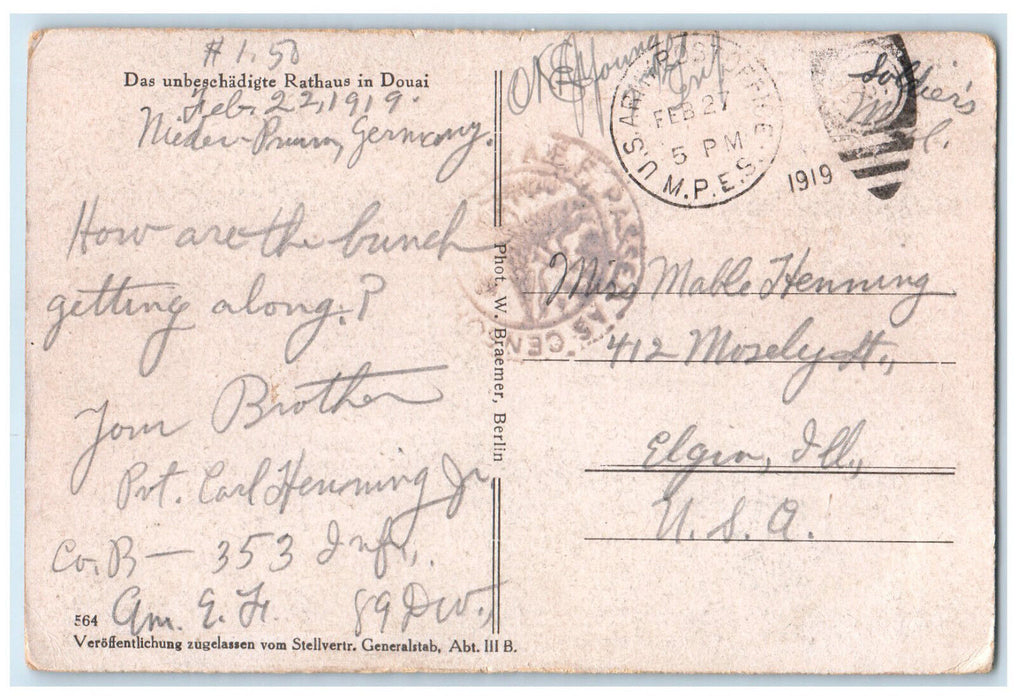 # 1.50
Das unbeschädigte Rathaus in Douai
Feb. 22, 1919.
Nieder-Prum, Germany.
How are the bunch
getting along.?
Your Brother
Pvt. Carl Henning Jr.
Co. B — 353 Inf.,
Am. E. F. 89 Div.,
564
Veröffentlichung zugelassen vom Stellvertr. Generalstab, Abt. III B.
Phot. W. Braemer, Berlin
OK Young
U.S. ARMY POST OFFICE
M.P.E.S.
FEB 27
5 PM
1919
Soldier's
Mail.
A.E.F. PASSED AS CENSORED
Miss Mable Henning
412 Mosely St.,
Elgin, Ill.,
U. S. A.